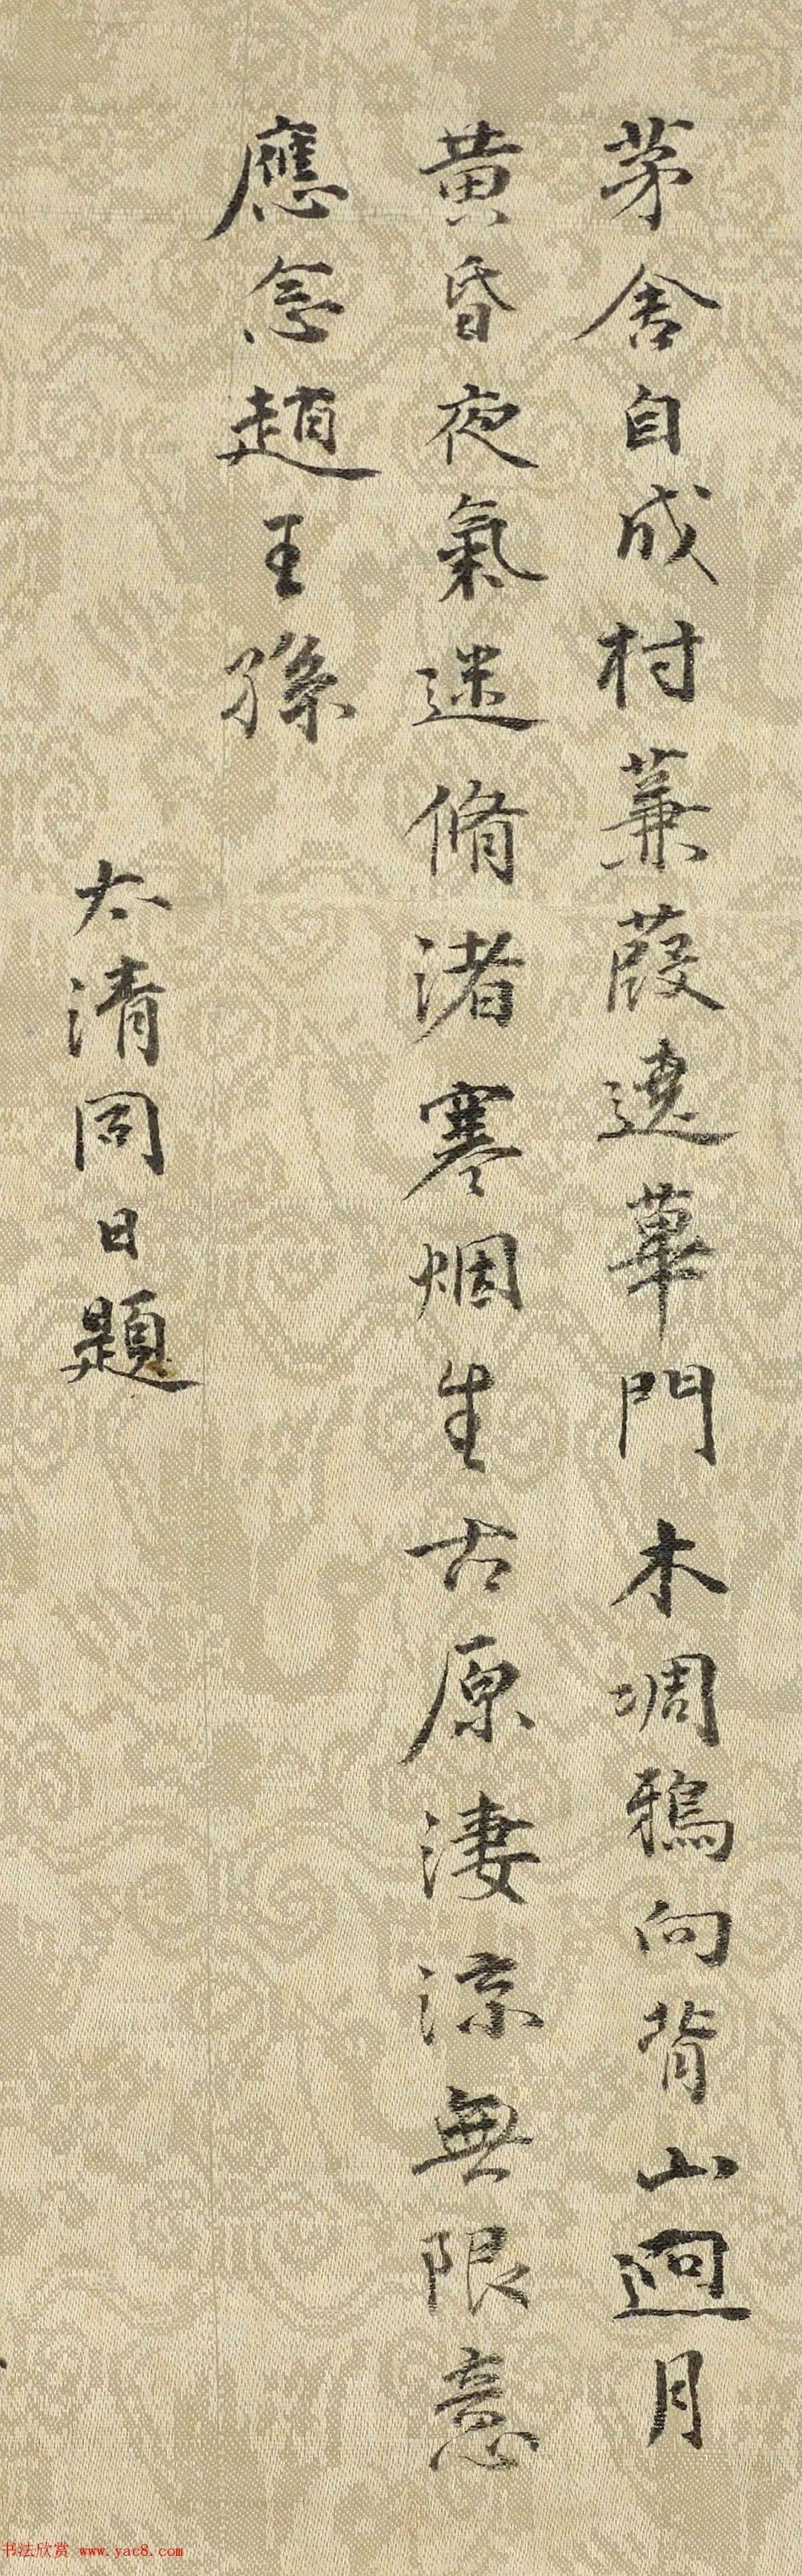 茅舍自成村蒹葭遶蓽門木凋鴉向背山迥月
黄昏夜氣迷脩渚寒烟生古原淒涼無限意
應念趙王孫
太清同日題
书法欣赏 www.yac8.com